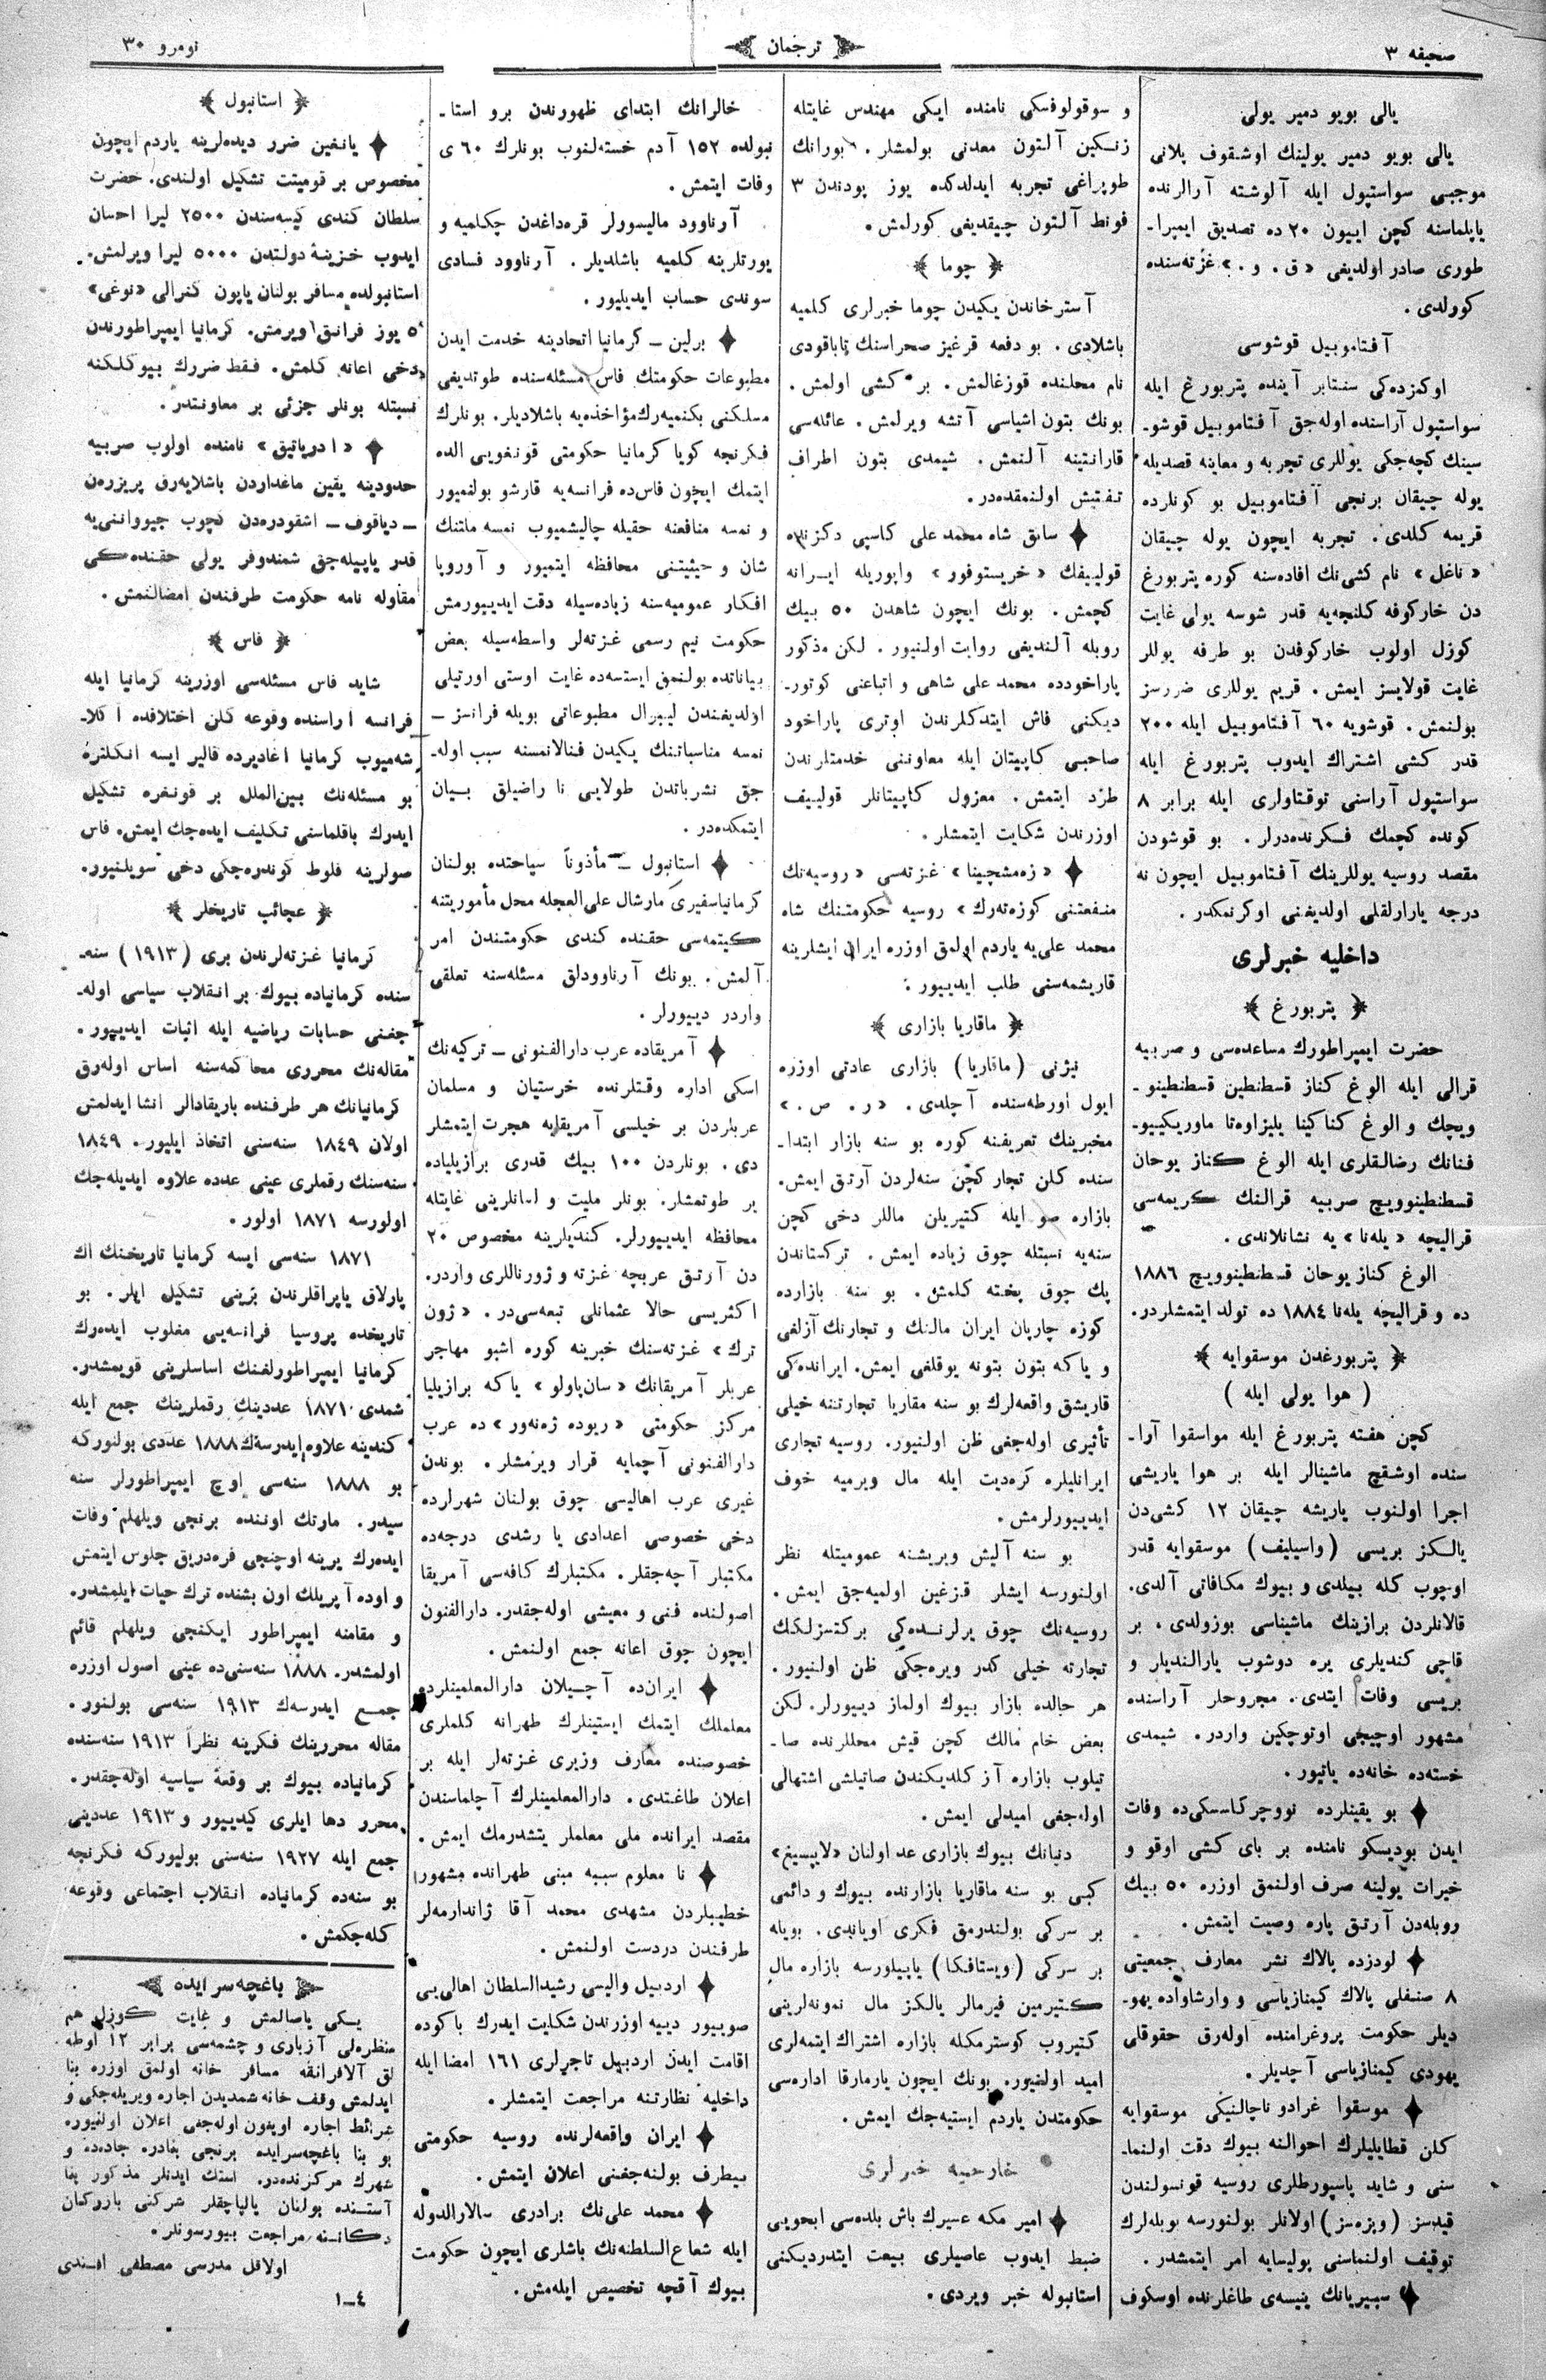 صحیفه ٣
ترجمان
نومرو ٣٠
یالی بویو دمیر یولی
یالی بویو دمیر یولینك اوشقوف پلانی
موجبی سواستپول ایله آلوشته آرالرنده
یاپلماسنه کچن ایيون ٢٠ ده تصدیق ایمپرا-
طوری صادر اولدیغی «ق. و.» غزته‌سنده
کورلدی.
آفتاموبیل قوشوسی
اوکمزده‌کی سنتابر آینده پتربورغ ایله
سواستپول آراسنده اوله‌جق آفتاموبیل قوشو-
سینك کچه‌جکی یوللری تجربه و معاینه قصدیله
یوله چیقان برنجی آفتاموبیل بو کونلرده
قریمه کلدی. تجربه ایچون یوله چیقان
«ناغل» نام کشی‌نك افاده‌سنه کوره پتربورغ
دن خارکوفه کلنجه‌یه قدر شوسه یولی غایت
کوزل اولوب خارکوفدن بو طرفه یوللر
غایت قولایسز ایمش. قریم یوللری ضررسز
بولنمش. قوشویه ٦٠ آفتاموبیل ایله ٢٠٠
قدر کشی اشتراك ایدوب پتربورغ ایله
سواستپول آراسنی توقتاولری ایله برابر ٨
کونده کچمك فکرنده‌درلر. بو قوشودن
مقصد روسیه یوللرینك آفتاموبیل ایچون نه
درجه یارارلقلی اولدیغنی اوکرنمکدر.
داخلیه خبرلری
﴿ پتربورغ ﴾
حضرت ایمپراطورك مساعده‌سی و صربیه
قرالی ایله الوغ کناز قسطنطین قسطنطینو-
ویچك و الوغ کناکینا یلیزاوه‌تا ماوریکییو-
فنانك رضالقلری ایله الوغ کناز یوحان
قسطنطینوویچ صربیه قرالنك کریمه‌سی
قرالیچه «یله‌نا» یه نشانلاندی.
الوغ کناز یوحان قسطنطینوویچ ١٨٨٦
ده و قرالیچه یله‌نا ١٨٨٤ ده تولد ایتمشلردر.
﴿ پتربورغدن موسقوایه ﴾
( هوا یولی ایله )
کچن هفته پتربورغ ایله مواسقوا آرا-
سنده اوشقچ ماشینالر ایله بر هوا یاریشی
اجرا اولنوب یاریشه چیقان ١٢ کشی‌دن
یالکز بریسی (واسیلیف) موسقوایه قدر
اوچوب کله بیلدی و بیوك مکافاتی آلدی.
قالانلردن برازینك ماشیناسی بوزولدی، بر
قاچی کندیلری یره دوشوب یارالندیلر و
بریسی وفات ایتدی. مجروحلر آراسنده
مشهور اوچیجی اوتوچکین واردر. شیمدی
خسته‌ده خانه‌ده یاتیور.
بو یقینلرده نووچرکاسسکی‌ده وفات
ایدن بودیسکو نامنده بر بای کشی اوقو و
خیرات یولینه صرف اولنمق اوزره ٥٠ بیك
روبله‌دن آرتق پاره وصیت ایتمش.
لودزده پالاك نشر معارف جمعیتی
٨ صنفلی پالاك کیمنازیاسی و وارشاواده یهو-
دیلر حکومت پروغرامنده اوله‌رق حقوقلی
یهودی کیمنازیاسی آچدیلر.
موسقوا غرادوناچالنیکی موسقوایه
کلن قطایلیلرك احوالنه بیوك دقت اولنما-
سنی و شاید پاسپورطلری روسیه قونسولندن
قیدسز (ویزه‌سز) اولانلر بولنورسه بویله‌لرك
توقیف اولنماسنی پولیسایه امر ایتمشدر.
سیبیریانك ینیسه‌ی طاغلرنده اوسکوف
و سوقولوفسکی نامنده ایکی مهندس غایتله
زنکین آلتون معدنی بولمشلر. بورانك
طوپراغی تجربه ایدلدکده یوز پودندن ٣
فونط آلتون چیقدیغی کورلمش.
﴿ چوما ﴾
آسترخاندن یکیدن چوما خبرلری کلمیه
باشلادی. بو دفعه قرغیز صحراسنك تاباقودی
نام محلنده قوزغالمش. بر کشی اولمش.
بونك بتون اشیاسی آتشه ویرلمش. عائله‌سی
قارانتینه آلنمش. شیمدی بتون اطراف
تفتیش اولنمقده‌در.
سابق شاه محمد علی کاسپی دکزنده
قولییفك «خریستوفور» واپوریله ایرانه
کچمش. بونك ایچون شاهدن ٥٠ بیك
روبله آلندیغی روایت اولنیور. لکن مذکور
پاراخودده محمد علی شاهی و اتباعنی کوتور-
دیکنی فاش ایتدکلرندن اوتری پاراخود
صاحبی کاپیتان ایله معاوننی خدمتلرندن
طرد ایتمش. معزول کاپیتانلر قولییف
اوزرندن شکایت ایتمشلر.
«زه‌مشچینا» غزته‌سی «روسیه‌نك
منفعتنی کوزه‌ته‌رك» روسیه حکومتنك شاه
محمد علی‌یه یاردم اولمق اوزره ایران ایشلرینه
قاریشمه‌سنی طلب ایدییور.
﴿ ماقاریا بازاری ﴾
نیژنی (ماقاریا) بازاری عادتی اوزره
ایول اورطه‌سنده آچلدی. «ر. ص.»
مخبرینك تعریفنه کوره بو سنه بازار ابتدا-
سنده کلن تجار کچن سنه‌لردن آرتق ایمش.
بازاره صو ایله کتیریلن ماللر دخی کچن
سنه‌یه نسبتله چوق زیاده ایمش. ترکستاندن
پك چوق پخته کلمش. بو سنه بازارده
کوزه چارپان ایران مالنك و تجارنك آزلغی
و یاکه بتون بتونه یوقلغی ایمش. ایرانده‌کی
قاریشق واقعه‌لرك بو سنه مقاریا تجارتنه خیلی
تأثیری اوله‌جغی ظن اولنیور. روسیه تجاری
ایرانلیلره کره‌دیت ایله مال ویرمیه خوف
ایدییورلرمش.
بو سنه آلیش ویریشنه عمومیتله نظر
اولنورسه ایشلر قزغین اولمیه‌جق ایمش.
روسیه‌نك چوق یرلرنده‌کی برکتسزلکك
تجارته خیلی کدر ویره‌جکی ظن اولنیور.
هر حالده بازار بیوك اولماز دییورلر. لکن
بعض خام مالك کچن قیش محللرنده صا-
تیلوب بازاره آز کلدیکندن صاتیلشی اشتهالی
اوله‌جغی امیدلی ایمش.
دنیانك بیوك بازاری عد اولنان «لایپسیغ»
کبی بو سنه ماقاریا بازارنده بیوك و دائمی
بر سرکی بولندرمق فکری اویاندی. بویله
بر سرکی (ویستافکا) یاپیلورسه بازاره مال
کتیرمین فیرمالر یالکز مال نمونه‌لرینی
کتیروب کوسترمکله بازاره اشتراك ایتمه‌لری
امید اولنیور. بونك ایچون یارمارقا اداره‌سی
حکومتدن یاردم ایستیه‌جك ایمش.
خارجیه خبرلری
امیر مکه عسیرك باش بلده‌سی ابحویی
ضبط ایدوب عاصیلری بیعت ایتدردیکنی
استانبوله خبر ویردی.
خالرانك ابتدای ظهورندن برو استا-
نبولده ١٥٢ آدم خسته‌لنوب بونلرك ٦٠ ی
وفات ایتمش.
آرناوود مالیسوولر قره‌داغدن چکلمیه و
یورتلرینه کلمیه باشلدیلر. آرناوود فسادی
سوندی حساب ایدیلیور.
برلین – کرمانیا اتحادینه خدمت ایدن
مطبوعات حکومتك فاس مسئله‌سنده طوتدیغی
مسلکنی بکنمیه‌رك مؤاخذه‌یه باشلادیلر. بونلرك
فکرنجه کویا کرمانیا حکومتی قونغویی الده
ایتمك ایچون فاس‌ده فرانسه‌یه قارشو بولنمیور
و نمسه منافعنه حقیله چالیشمیوب نمسه ملتنك
شان و حیثیتنی محافظه ایتمیور و آوروپا
افکار عمومیه‌سنه زیاده‌سیله دقت ایدییورمش
حکومت نیم رسمی غزته‌لر واسطه‌سیله بعض
بیاناتده بولنمق ایستسه‌ده غایت اوستی اورتیلی
اولدیغندن لیبرال مطبوعاتی بویله فرانسز –
نمسه مناسباتنك یکیدن فنالانمسنه سبب اوله-
جق نشریاتدن طولایی نا راضیلق بیان
ایتمکده‌در.
استانبول – مأذوناً سیاحتده بولنان
کرمانیا سفیری مارشال علی‌العجله محل مأموریتنه
کیتمه‌سی حقنده کندی حکومتندن امر
آلمش. بونك آرناوودلق مسئله‌سنه تعلقی
واردر دییورلر.
آمریقاده عرب دارالفنونی – ترکیه‌نك
اسکی اداره وقتلرنده خرستیان و مسلمان
عربلردن بر خیلسی آمریقایه هجرت ایتمشلر
دی. بونلردن ١٠٠ بیك قدری برازیلیاده
یر طوتمشلر. بونلر ملیت و لسانلرینی غایتله
محافظه ایدییورلر. کندیلرینه مخصوص ٢٠
دن آرتق عربچه غزته و ژورناللری واردر.
اکثریسی حالا عثمانلی تبعه‌سی‌در. «ژون
ترك» غزته‌سنك خبرینه کوره اشبو مهاجر
عربلر آمریقانك «سان‌پاولو» یاکه برازیلیا
مرکز حکومتی «ریوده ژه‌نه‌ور» ده عرب
دارالفنونی آچمایه قرار ویرمشلر. بوندن
غیری عرب اهالیسی چوق بولنان شهرلرده
دخی خصوصی اعدادی یا رشدی درجه‌ده
مکتبلر آچه‌جقلر. مکتبلرك کافه‌سی آمریقا
اصولنده فنی و معیشی اوله‌جقدر. دارالفنون
ایچون چوق اعانه جمع اولنمش.
ایران‌ده آچیلان دارالمعلمینلرده
معلملك ایتمك ایستینلرك طهرانه کلملری
خصوصنده معارف وزیری غزته‌لر ایله بر
اعلان طاغتدی. دارالمعلمینلرك آچلماسندن
مقصد ایرانده ملی معلملر یتشدرمك ایمش.
نا معلوم سببه مبنی طهرانده مشهور
خطیبلردن مشهدی محمد آقا ژاندارمه‌لر
طرفندن دردست اولنمش.
اردبیل والیسی رشیدالسلطان اهالی‌یی
صوییور دییه اوزرندن شکایت ایدرك باکوده
اقامت ایدن اردبیل تاجرلری ١٦١ امضا ایله
داخلیه نظارتنه مراجعت ایتمشلر.
ایران واقعه‌لرنده روسیه حکومتی
بیطرف بولنه‌جغنی اعلان ایتمش.
محمد علی‌نك برادری سالارالدوله
ایله شعاع السلطنه‌نك باشلری ایچون حکومت
بیوك آقچه تخصیص ایله‌مش.
﴿ استانبول ﴾
یانغین ضرر دیده‌لرینه یاردم ایچون
مخصوص بر قومیتت تشکیل اولندی. حضرت
سلطان کندی کیسه‌سندن ٢٥٠٠ لیرا احسان
ایدوب خزینۀ دولتدن ٥٠٠٠ لیرا ویرلمش.
استانبولده مسافر بولنان یاپون کنرالی «نوغی»
٥ یوز فرانق ویرمش. کرمانیا ایمپراطورندن
دخی اعانه کلمش. فقط ضررك بیوکلکنه
نسبتله بونلر جزئی بر معاونتدر.
«ادریاتیق» نامنده اولوب صربیه
حدودینه یقین ماغداردن باشلایه‌رق پریزرەن
– دیاقوف – اشقودره‌دن کچوب جیوواننی‌یه
قدر یاپیله‌جق شمندوفر یولی حقنده‌کی
مقاوله نامه حکومت طرفندن امضالنمش.
﴿ فاس ﴾
شاید فاس مسئله‌سی اوزرینه کرمانیا ایله
فرانسه اراسنده وقوعه کلن اختلافده اکلا-
شه‌میوب کرمانیا اغادیرده قالیر ایسه انکلتره
بو مسئله‌نك بین‌الملل بر قونغره تشکیل
ایدرك باقلماسنی تکلیف ایده‌جك ایمش. فاس
صولرینه فلوط کوندره‌جکی دخی سویلنیور.
﴿ عجائب تاریخلر ﴾
کرمانیا غزته‌لرندن بری (١٩١٣) سنه-
سنده کرمانیاده بیوك بر انقلاب سیاسی اوله-
جغنی حسابات ریاضیه ایله اثبات ایدییور.
مقاله‌نك محرری محاکمه‌سنه اساس اوله‌رق
کرمانیانك هر طرفنده باریقادالر انشا ایدلمش
اولان ١٨٤٩ سنه‌سنی اتخاذ ایلیور. ١٨٤٩
سنه‌سنك رقملری عینی عدده علاوه ایدیله‌جك
اولورسه ١٨٧١ اولور.
١٨٧١ سنه‌سی ایسه کرمانیا تاریخنك اك
پارلاق یاپراقلرندن برینی تشکیل ایلر. بو
تاریخده پروسیا فرانسه‌یی مغلوب ایده‌رك
کرمانیا ایمپراطورلغنك اساسلرینی قویمشدر.
شمدی ١٨٧١ عددینك رقملرینك جمع ایله
کندینه علاوه ایدرسه‌ك ١٨٨٨ عددی بولنورکه
بو ١٨٨٨ سنه‌سی اوچ ایمپراطورلر سنه
سیدر. مارتك اوننده برنجی ویلهلم وفات
ایده‌رك یرینه اوچنجی فره‌دریق جلوس ایتمش
و اوده آپریلك اون بشنده ترك حیات ایلمشدر.
و مقامنه ایمپراطور ایکنجی ویلهلم قائم
اولمشدر. ١٨٨٨ سنه‌سنی‌ده عینی اصول اوزره
جمع ایدرسه‌ك ١٩١٣ سنه‌سی بولنور.
مقاله محررینك فکرینه نظراً ١٩١٣ سنه‌سنده
کرمانیاده بیوك بر وقعۀ سیاسیه اوله‌جقدر.
محرر دها ایلری کیدییور و ١٩١٣ عددینی
جمع ایله ١٩٢٧ سنه‌سنی بولیورکه فکرنجه
بو سنه‌ده کرمانیاده انقلاب اجتماعی وقوعه
کله‌جکمش.
باغچه‌سرایده
یکی یاصالمش و غایت کوزل هم
منظره‌لی آزباری و چشمه‌سی برابر ١٢ اوطه
لق آلافرانغه مسافر خانه اولمق اوزره بنا
ایدلمش وقف خانه شمدیدن اجاره ویریله‌جکی و
شرائط اجاره اویغون اوله‌جغی اعلان اولنیور.
بو بنا باغچه‌سرایده برنجی بغادره جاده‌ده و
شهرك مرکزنده‌در. استك ایدنلر مذکور بنا
آستنده بولنان یالپاچقلر شرکتی بازرکان
دکاننه مراجعت بیورسونلر.
اولاقل مدرسی مصطفی افندی
٤–١